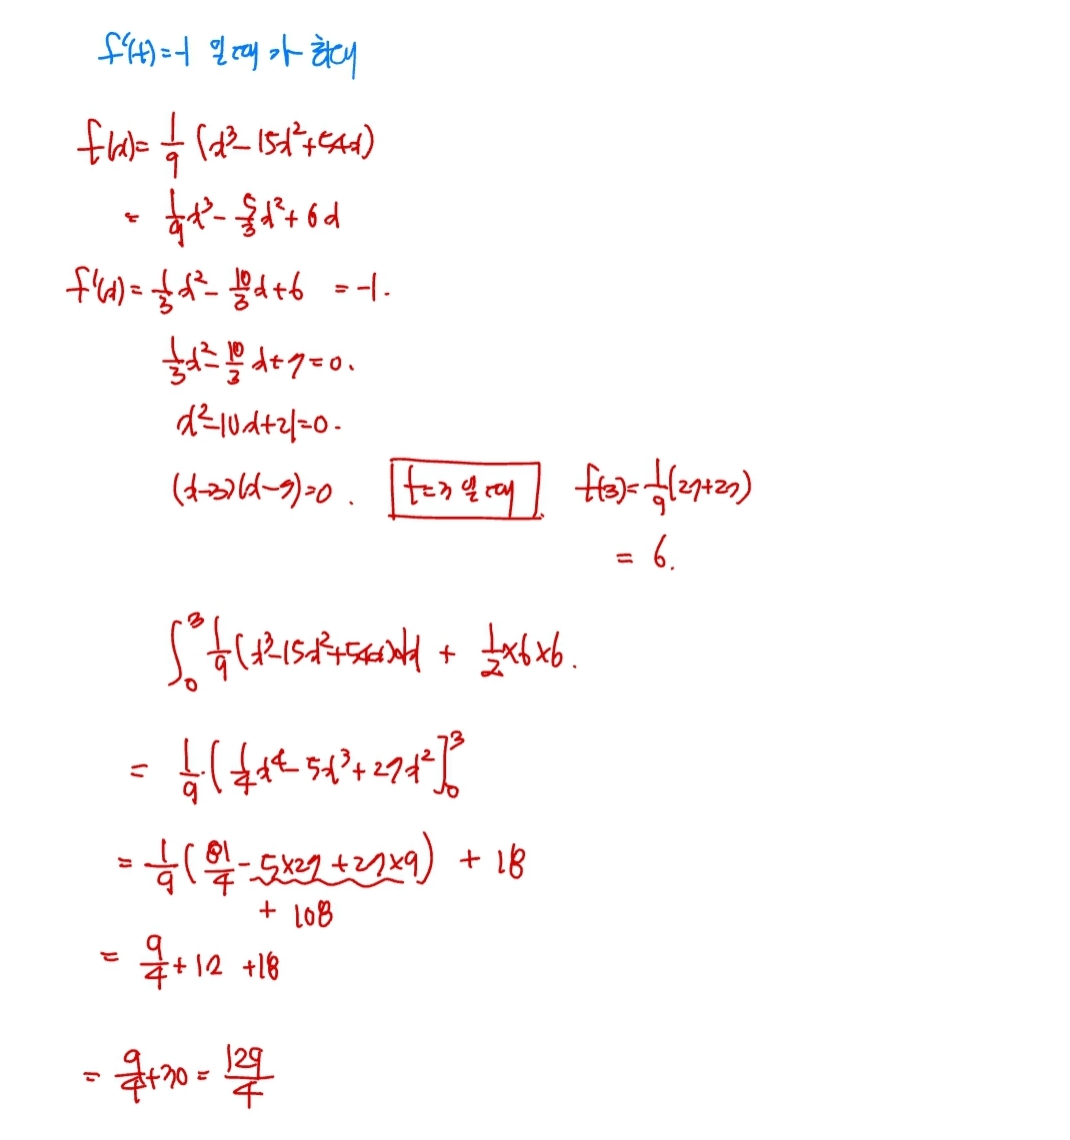 f'(t)=-1 일 때 가 최대
f(x)= 1/9 (x³-15x²+54x)
= 1/9x³- 5/3x²+ 6x
f'(x)= 1/3x²- 10/3x+6 =-1.
1/3x²- 10/3x+7=0.
x²-10x+21=0.
(x-3)(x-7)=0. t=3 일 때 f(3)= 1/9(27+27)
= 6.
∫₀³ 1/9(x³-15x²+54x)dx + 1/2×6×6.
= 1/9·(1/4x⁴- 5x³+ 27x²]₀³
= 1/9(81/4 - 5×27 +27×9) + 18
+ 108
= 9/4+12 +18
= 9/4+30 = 129/4